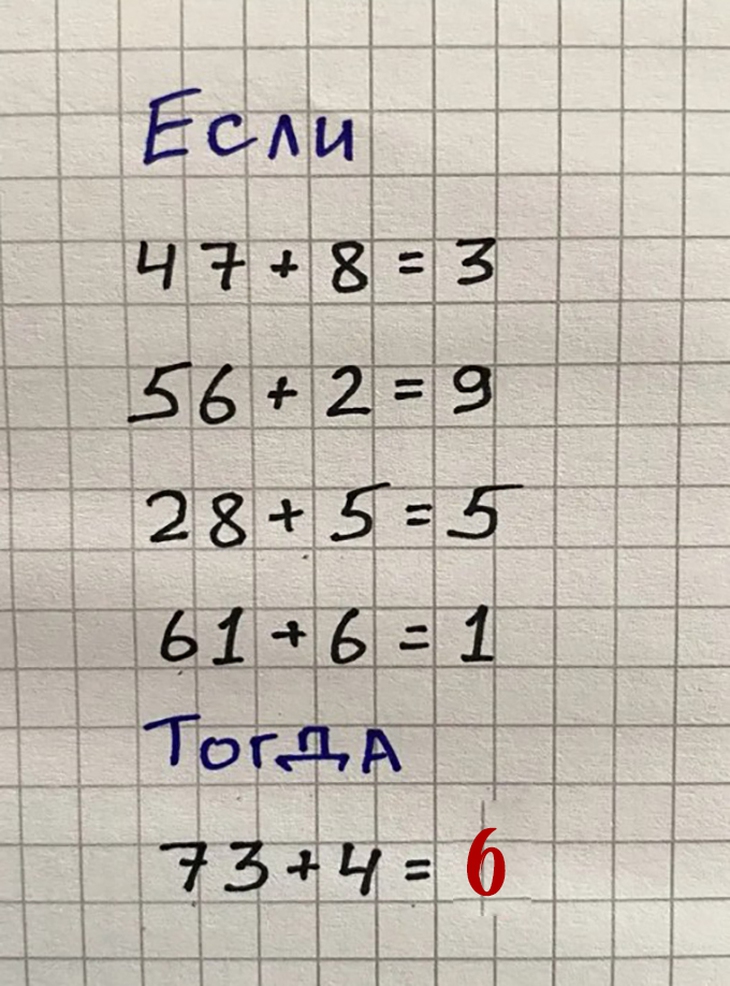 Если
47 + 8 = 3
56 + 2 = 9
28 + 5 = 5
61 + 6 = 1
Тогда
73 + 4 = 6